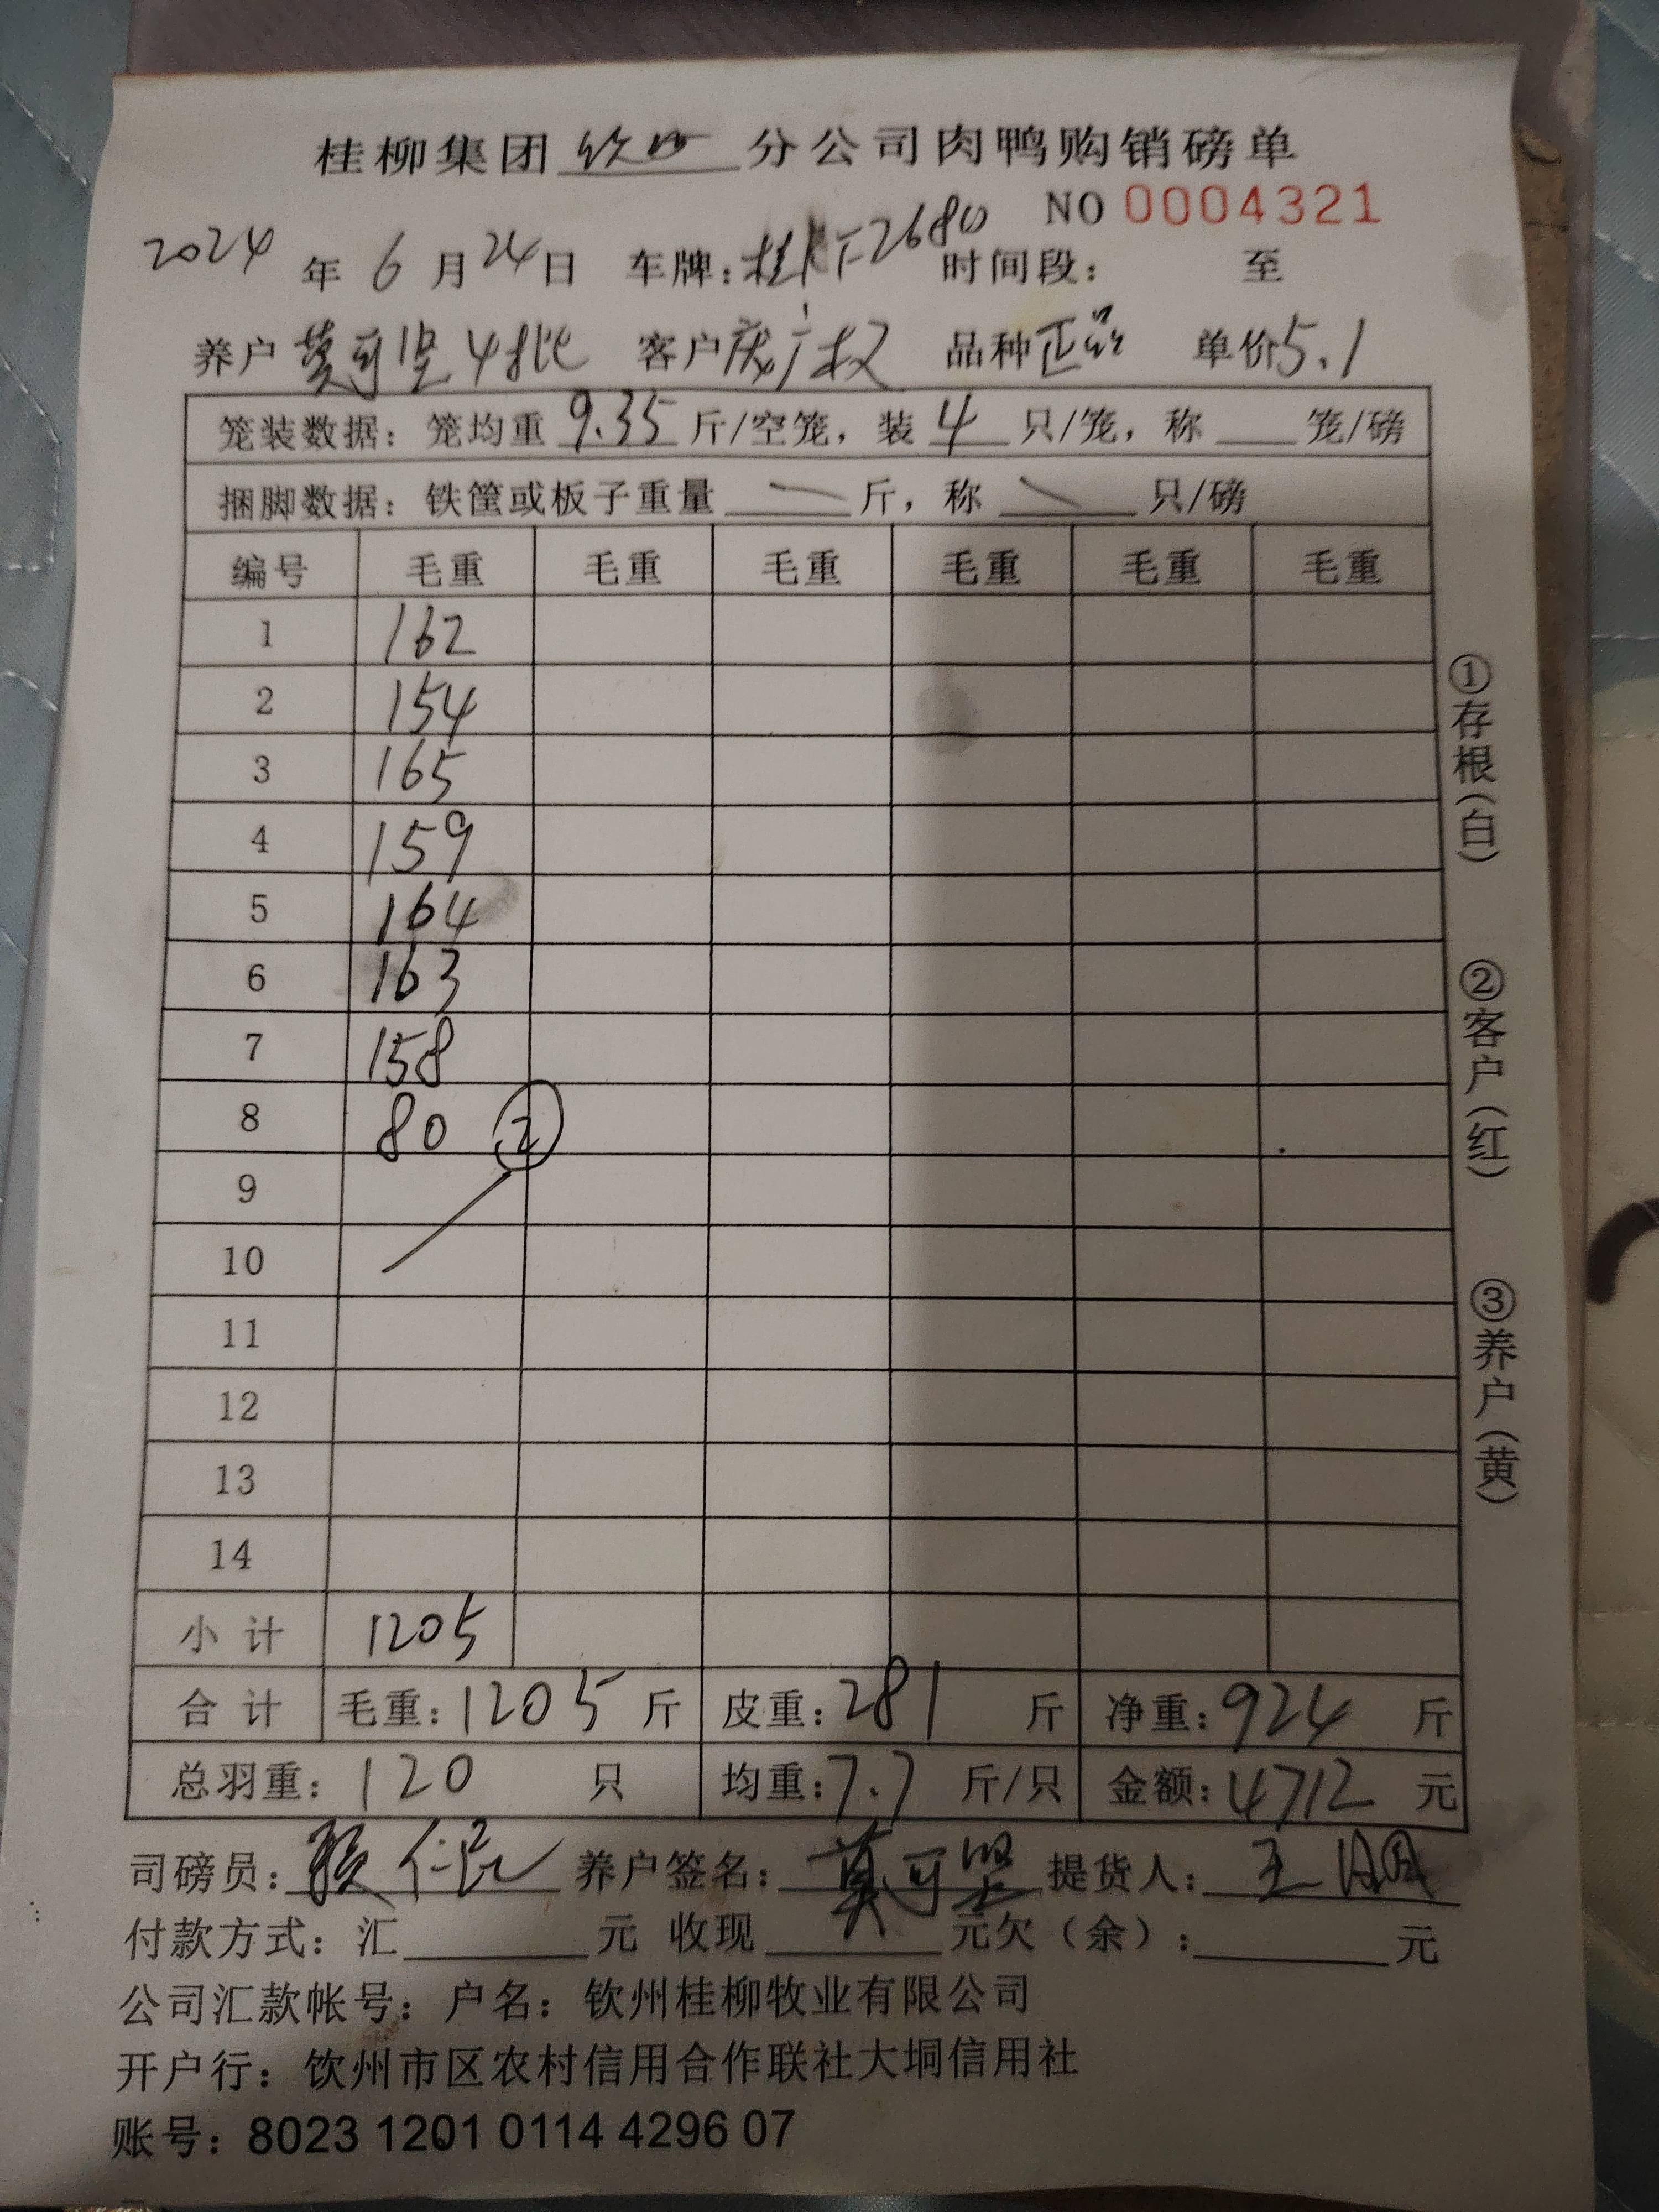 桂柳集团 钦州 分公司肉鸭购销磅单
NO 0004321
2024 年 6 月 24 日 车牌: 时间段: 至
养户 莫可坚 4批 客户 庞广权 品种 正品 单价 5.1
笼装数据: 笼均重 9.35 斤/空笼, 装 4 只/笼, 称 笼/磅
捆脚数据: 铁筐或板子重量 斤, 称 只/磅
编号 毛重 毛重 毛重 毛重 毛重 毛重
1 162
2 154
3 165
4 159
5 164
6 163
7 158
8 80 ②
9
10
11
12
13
14
小计 1205
合计 毛重: 1205 斤 皮重: 281 斤 净重: 924 斤
总羽重: 120 只 均重: 7.7 斤/只 金额: 4712 元
司磅员: 养户签名: 莫可坚 提货人: 王
付款方式: 汇 元 收现 元欠(余): 元
公司汇款帐号: 户名: 钦州桂柳牧业有限公司
开户行: 钦州市区农村信用合作联社大垌信用社
账号: 8023 1201 0114 4296 07
①存根(白)
②客户(红)
③养户(黄)